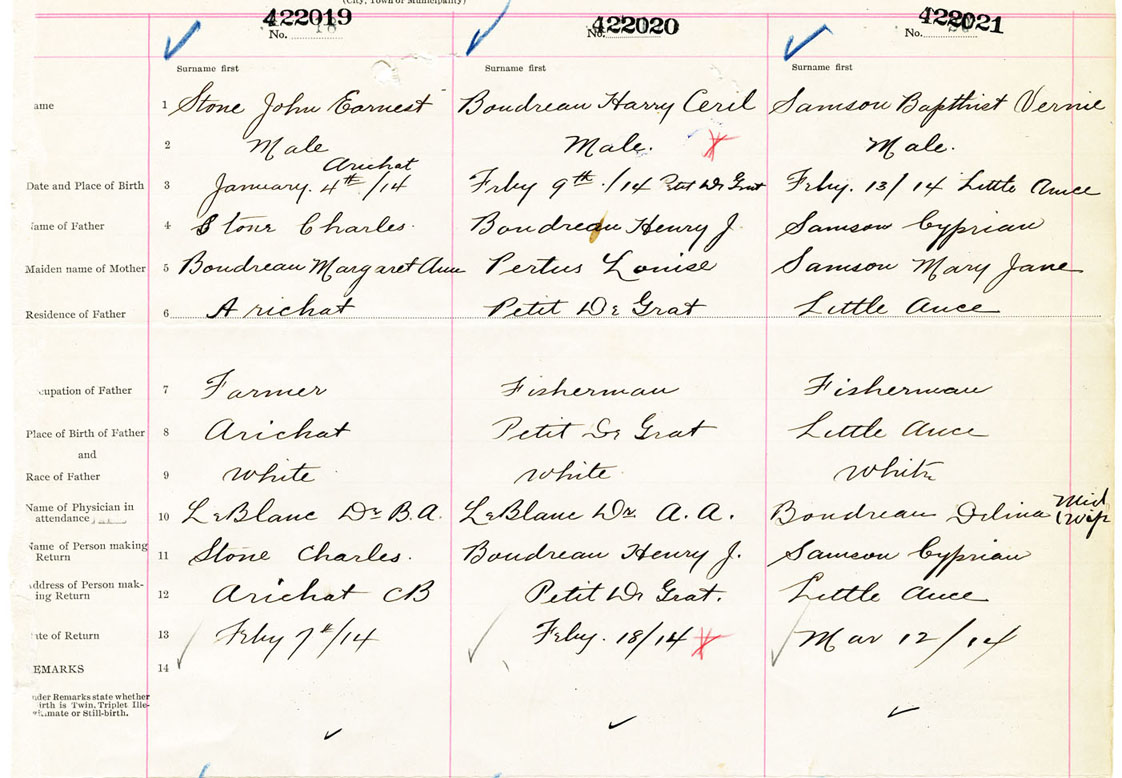 (City, Town or Municipality)
422019 422020 422021
No. 18 No. No. 20
Surname first Surname first Surname first
ame 1 Stone John Earnest Boudreau Harry Ceril Samson Bapthist Vernie
2 Male Male. Male.
Arichat
Date and Place of Birth 3 January. 4th/14 Feby 9th./14 Petit De Grat Feby. 13/14 Little Ance
Name of Father 4 Stone Charles. Boudreau Henry J. Samson Cyprian
Maiden name of Mother 5 Boudreau Margaret Ann Pertus Louise Samson Mary Jane
Residence of Father 6 Arichat Petit De Grat Little Ance
cupation of Father 7 Farmer Fisherman Fisherman
Place of Birth of Father 8 Arichat Petit De Grat Little Ance
and
Race of Father 9 White White White
Name of Physician in
attendance 10 LeBlanc Dr B.A. LeBlanc Dr A.A. Boudreau Delina Mid
wife
Name of Person making
Return 11 Stone Charles. Boudreau Henry J. Samson Cyprian
ddress of Person mak-
ing Return 12 Arichat CB Petit De Grat. Little Ance
ate of Return 13 Feby 7th/14 Feby. 18/14 Mar 12/14
EMARKS 14
nder Remarks state whether
irth is Twin, Triplet Ille-
gitimate or Still-birth.